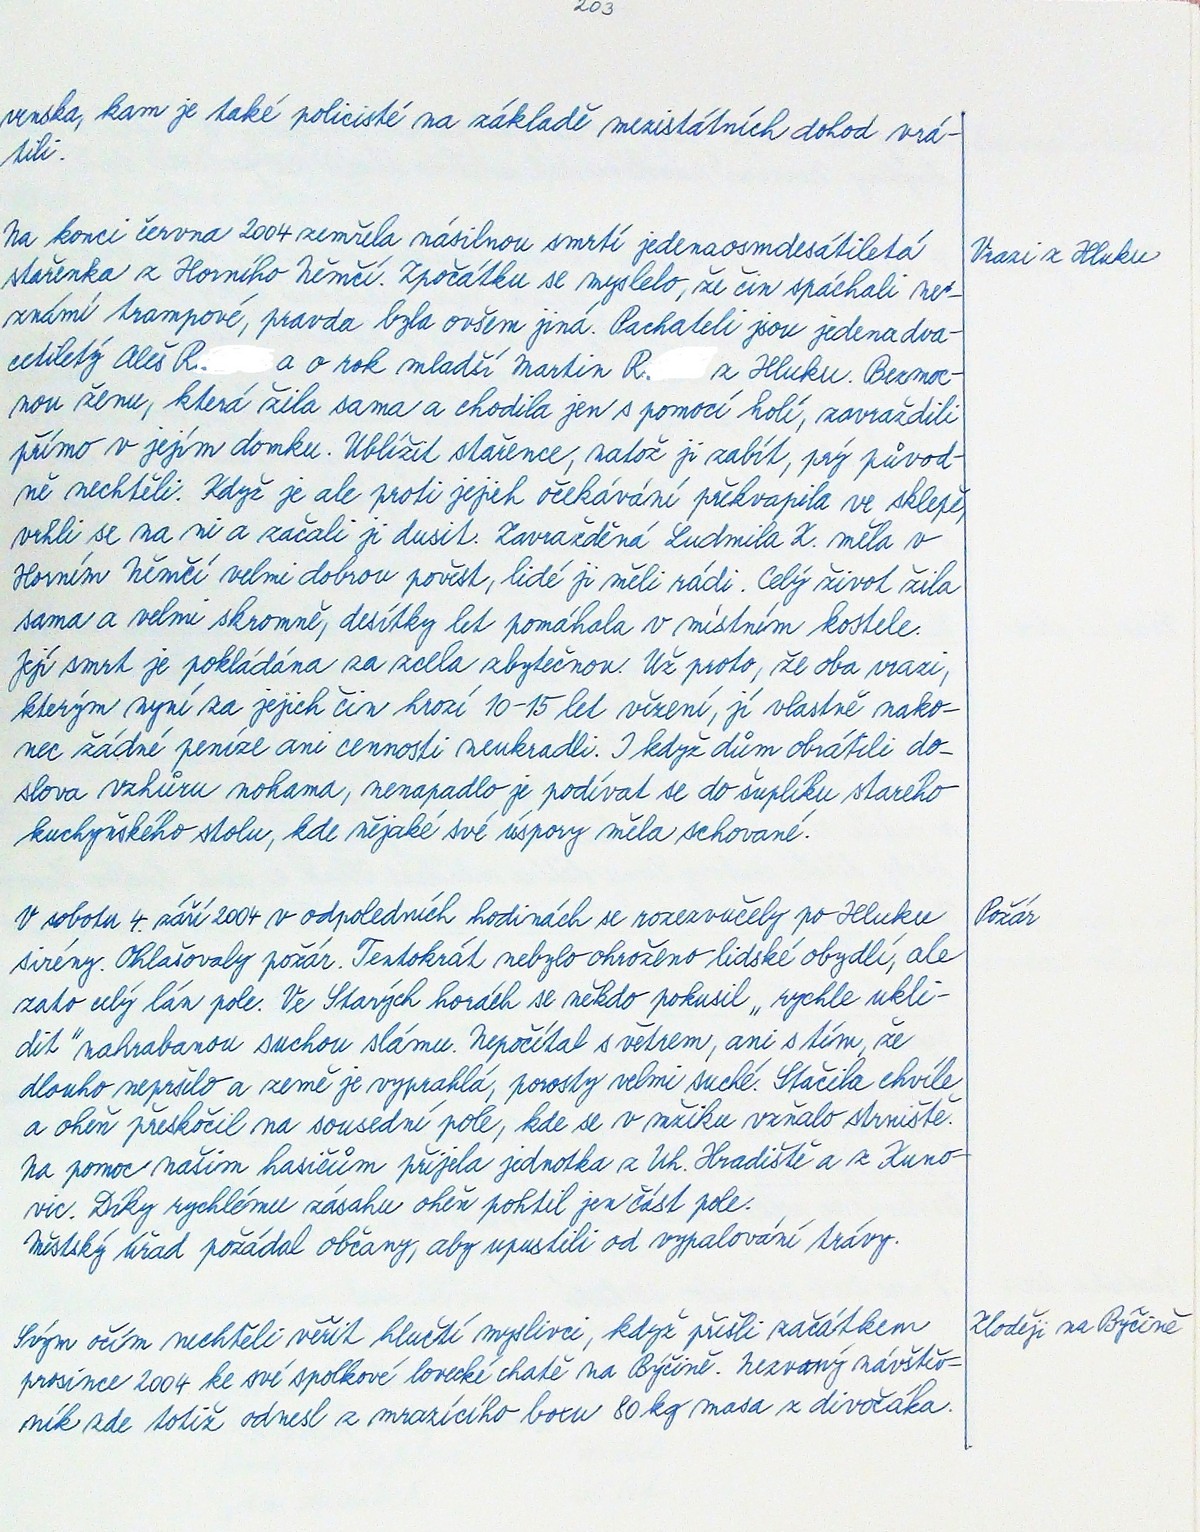 203
venska, kam je také policisté na základě mezistátních dohod vrá-
tili.
Na konci června 2004 zemřela násilnou smrtí jedenaosmdesátiletá
Vrazi z Hluku
stařenka z Horního Němčí. Zpočátku se myslelo, že čin spáchali ne-
známí trampové, pravda byla ovšem jiná. Pachateli jsou jedenadva-
cetiletý Aleš R. a o rok mladší Martin R. z Hluku. Bezmoc-
nou ženu, která žila sama a chodila jen s pomocí holí, zavraždili
přímo v jejím domku. Ublížit stařence, natož ji zabít, prý původ-
ně nechtěli. Když je ale proti jejich očekávání překvapila ve sklepě,
vrhli se na ni a začali ji dusit. Zavražděná Ludmila Z. měla v
Horním Němčí velmi dobrou pověst, lidé ji měli rádi. Celý život žila
sama a velmi skromně, desítky let pomáhala v místním kostele.
Její smrt je pokládána za zcela zbytečnou. Už proto, že oba vrazi,
kterým nyní za jejich čin hrozí 10-15 let vězení, jí vlastně nako-
nec žádné peníze ani cennosti neukradli. I když dům obrátili do-
slova vzhůru nohama, nenapadlo je podívat se do šuplíku starého
kuchyňského stolu, kde nějaké své úspory měla schované.
V sobotu 4. září 2004 v odpoledních hodinách se rozezvučely po Hluku
Požár
sirény. Ohlašovaly požár. Tentokrát nebylo ohroženo lidské obydlí, ale
zato celý lán pole. Ve Starých horách se někdo pokusil „rychle ukli-
dit" nahrabanou suchou slámu. Nepočítal s větrem, ani s tím, že
dlouho nepršelo a země je vyprahlá, porosty velmi suché. Stačila chvíle
a oheň přeskočil na sousední pole, kde se v mžiku vzňalo strniště.
Na pomoc našim hasičům přijela jednotka z Uh. Hradiště a z Kuno-
vic. Díky rychlému zásahu oheň pohltil jen část pole.
Městský úřad požádal občany, aby upustili od vypalování trávy.
Svým očím nechtěli věřit hlučtí myslivci, když přišli začátkem
Zloději na Býčině
prosince 2004 ke své spolkové lovecké chatě na Býčině. Nezvaný návštěv-
ník zde totiž odnesl z mrazícího boxu 80 kg masa z divočáka.